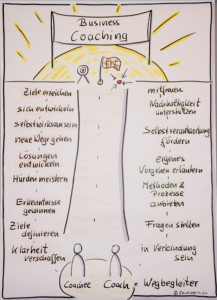 Business
Coaching
Ziele erreichen
sich entwickeln
selbstwirksam sein
neue Wege gehen
Lösungen
entwickeln
Hürden meistern
Erkenntnisse
gewinnen
Ziele
definieren
Klarheit
verschaffen
mitfreuen
Nachhaltigkeit
unterstützen
Selbstverantwortung
fördern
eigenes
Vorgehen erläutern
Methoden &
Prozesse
anbieten
Fragen stellen
in Verbindung
sein
Coachee
Coach = Wegbegleiter